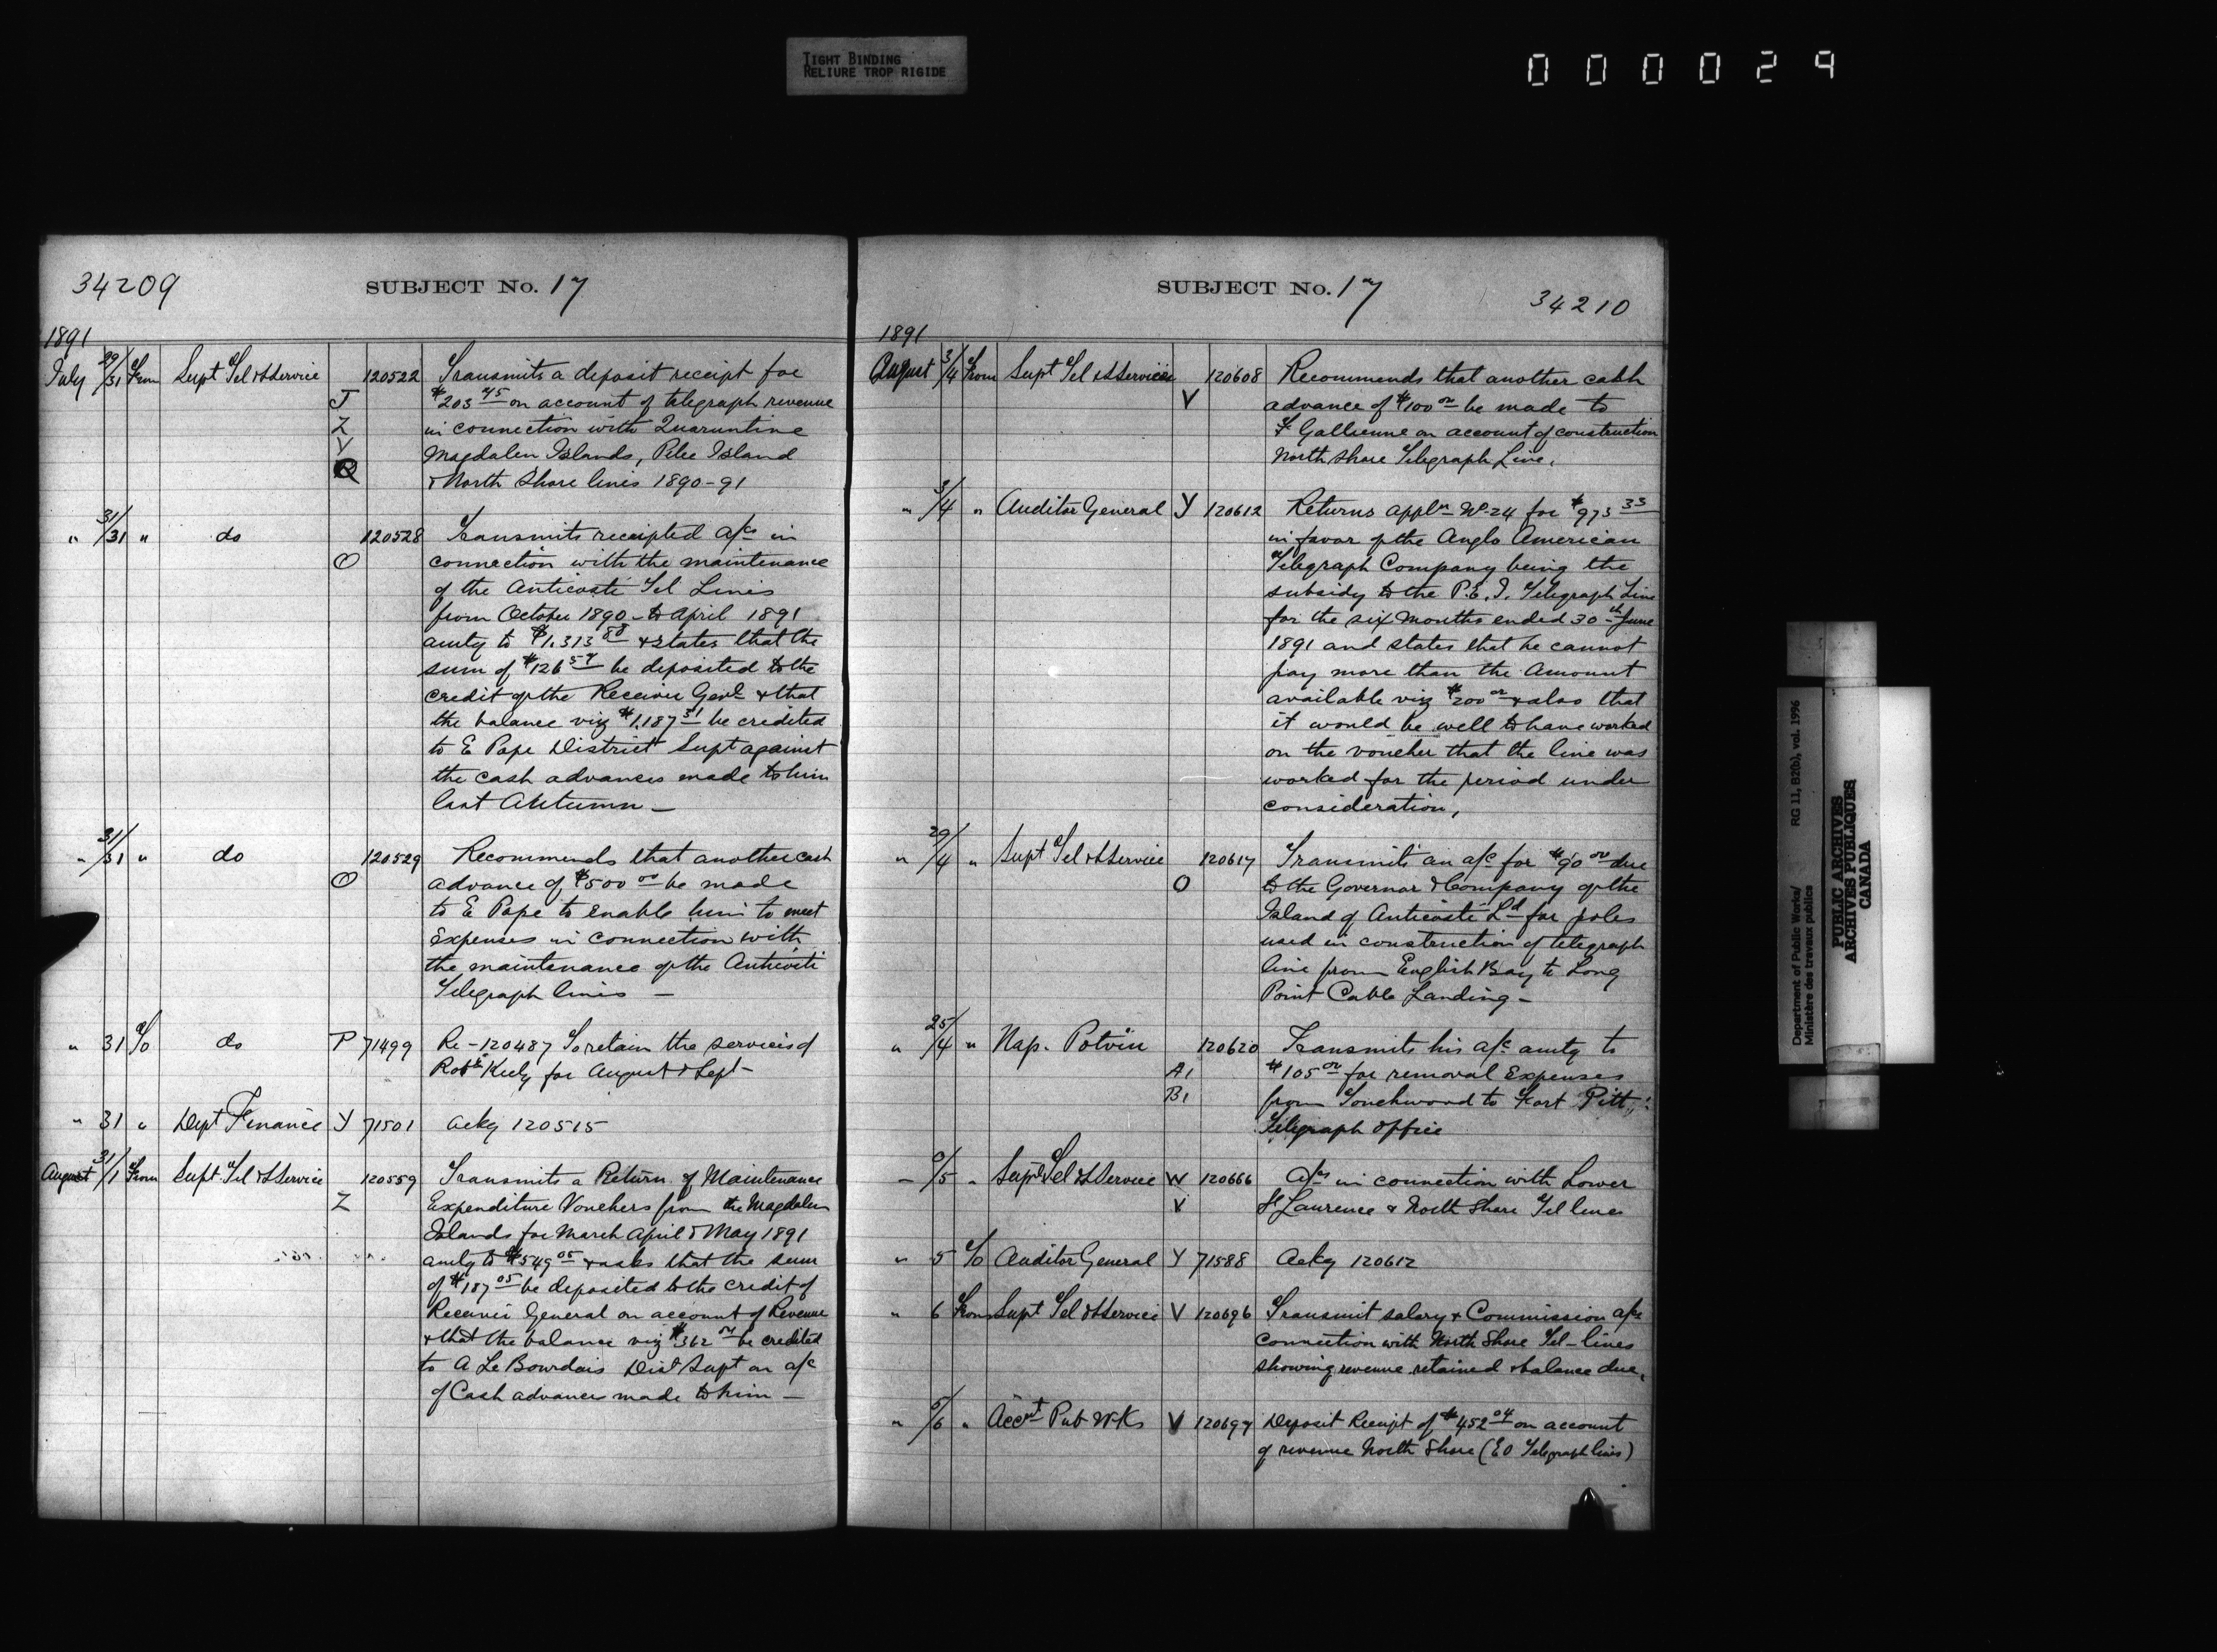 TIGHT BINDING
RELIURE TROP RIGIDE
000029
34209
SUBJECT No. 17
1891
July 29/31 From Supt Tel & S Service 120522 Transmits a deposit receipt for
J $203 45 on account of telegraph revenue
Z in connection with Quarantine
V Magdalen Islands, Pelee Island
& North Shore lines 1890-91
" 31/31 " do 120528 Transmits receipted a/cs in
O connection with the maintenance
of the Anticosti Tel Lines
from October 1890 to April 1891
amtg to $1,313 88 & states that the
sum of $126 57 be deposited to the
credit of the Receiver Genl & that
the balance viz $1,187 31 be credited
to E Pope District Supt against
the cash advances made to him
last Autumn —
" 31/31 " do 120529 Recommends that another cash
O advance of $500 00 be made
to E Pope to enable him to meet
Expenses in connection with
the maintenance of the Anticosti
Telegraph lines —
" 31 To do P 71499 Re - 120487 To retain the services of
Robt Keely for August & Sept -
" 31 " Dept Finance Y 71501 Ackg 120515
August 31/1 From Supt. Tel & S Service 120559 Transmits a Return of Maintenance
Z Expenditure Vouchers from the Magdalen
Islands for March April & May 1891
amtg to $549 05 & asks that the sum
of $187 05 be deposited to the credit of
Receiver General on account of Revenue
& that the balance viz $362 00 be credited
to A Le Bourdais Dist Supt on a/c
of Cash advances made to him —
SUBJECT No. 17
34210
1891
August 3/4 From Supt Tel & S Services 120608 Recommends that another cash
V advance of $100 00 be made to
F Gallienne on account of construction
North Shore Telegraph Line.
" 3/4 " Auditor General Y 120612 Returns appln No 24 for $973 33
in favor of the Anglo American
Telegraph Company being the
subsidy to the P.E.I. Telegraph Line
for the six months ended 30th June
1891 and states that he cannot
pay more than the Amount
available viz $200 00 & also that
it would be well to have worked
on the voucher that the line was
worked for the period under
consideration,
" 29/4 " Supt Tel & S Service 120617 Transmits an a/c for $90 00 due
O to the Governor & Company of the
Island of Anticosti Ld for poles
used in construction of telegraph
line from English Bay to Long
Point Cable Landing -
" 25/4 " Nap. Potvin 120620 Transmits his a/c amtg to
A1 $105 00 for removal Expenses
B1 from Touchwood to Fort Pitt
Telegraph office
" /5 " Supt Tel & S Service W 120666 A/cs in connection with Lower
V St Laurence & North Shore Tel lines
" 5 To Auditor General Y 71588 Ackg 120612
" 6 From Supt Tel & S Service V 120696 Transmit salary & Commission a/cs
connection with North Shore Tel - lines
showing revenue retained & balance due,
" 5/6 " Acct Pub Wks V 120697 Deposit Receipt of $452 04 on account
of revenue North Shore (E O Telegraph lines)
Department of Public Works/
Ministère des travaux publics
RG 11, B2(b), vol. 1996
PUBLIC ARCHIVES
ARCHIVES PUBLIQUES
CANADA